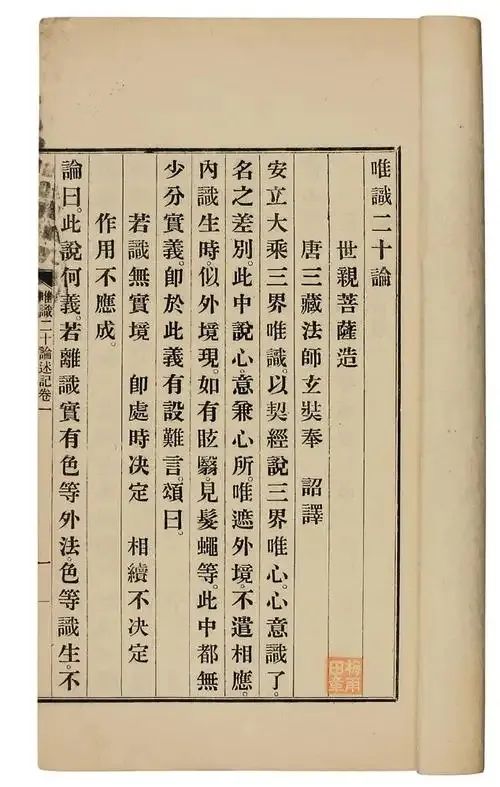 唯識二十論
世親菩薩造
唐三藏法師玄奘奉　詔譯
安立大乘三界唯識。以契經說三界唯心。心意識了。
名之差別。此中說心。意兼心所。唯遮外境。不遣相應。
內識生時。似外境現。如有眩瞖。見髮蠅等。此中都無
少分實義。卽於此義有設難言。頌曰。
若識無實境　卽處時決定　相續不決定
作用不應成。
論曰。此說何義。若離識實有色等外法。色等識生。不
唯識二十論述記卷一
一